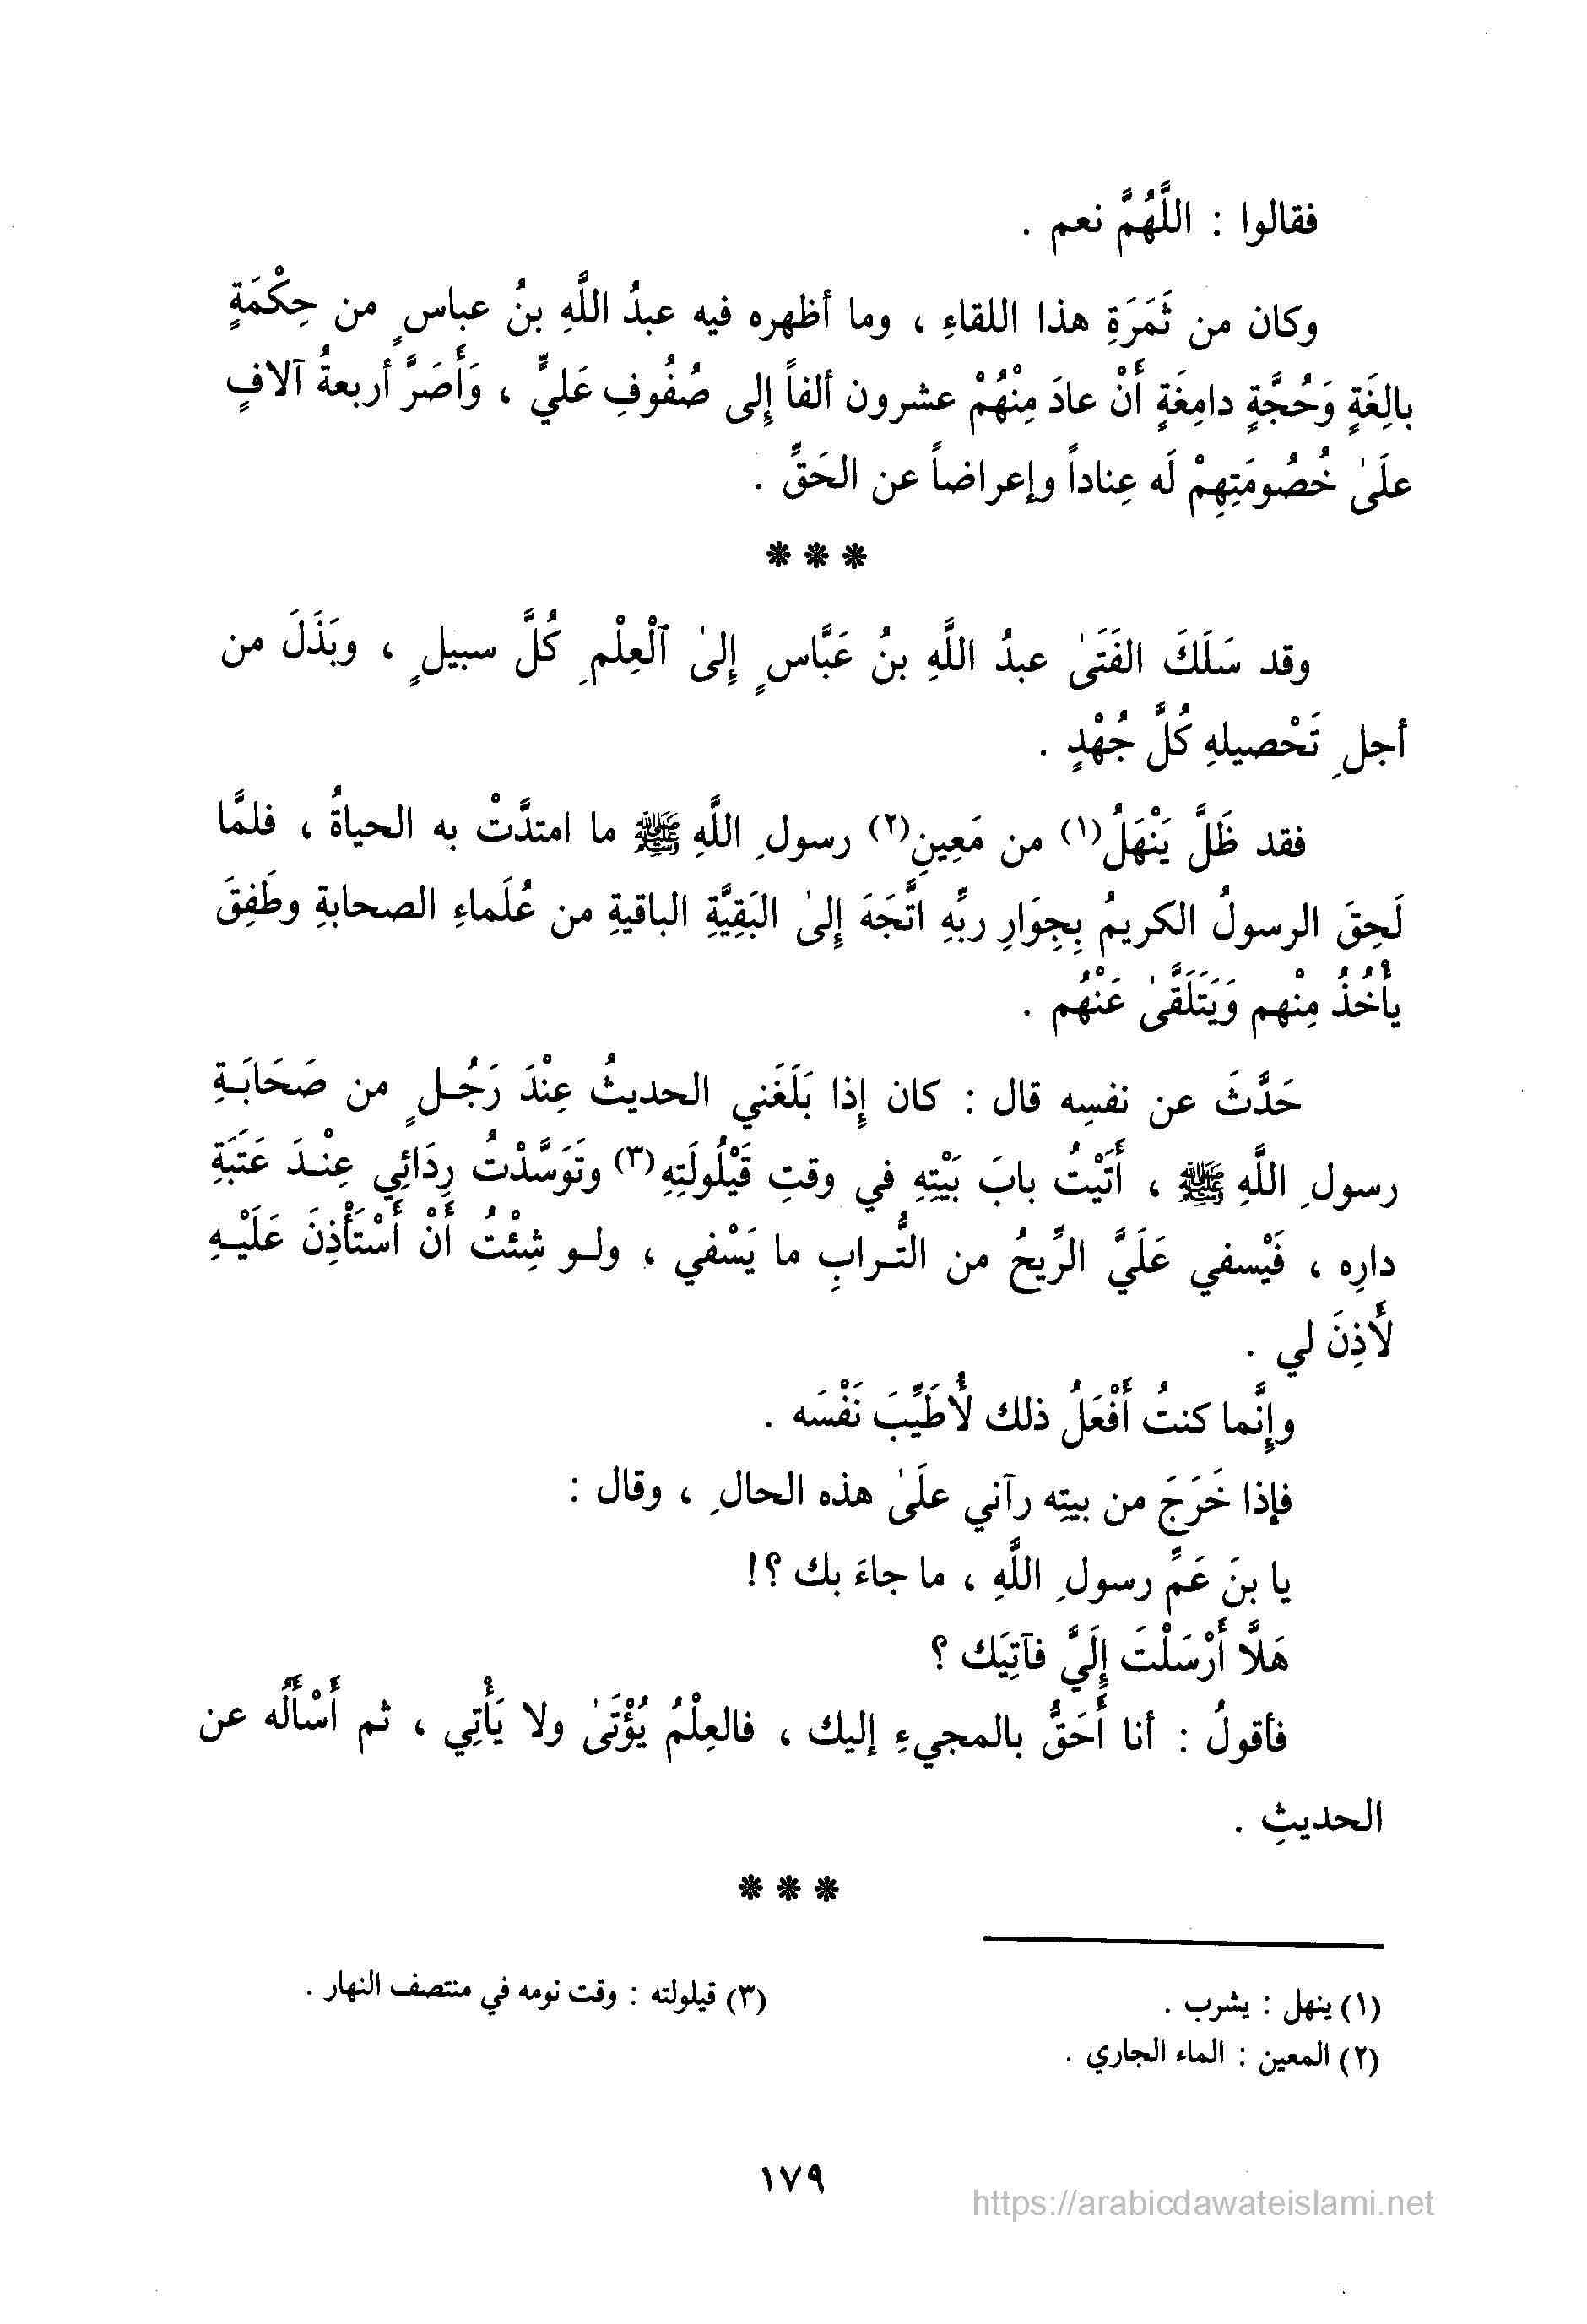 فقالوا : اللَّهُمَّ نعم .
وكان من ثَمَرَةِ هذا اللقاءِ ، وما أظهره فيه عبدُ اللَّهِ بنُ عباسٍ من حِكْمَةٍ
بالِغَةٍ وَحُجَّةٍ دامِغَةٍ أَنْ عادَ مِنْهُمْ عشرون ألفاً إِلى صُفُوفِ عَليٍّ ، وَأَصَرَّ أربعةُ آلافٍ
علَىٰ خُصُومَتِهِمْ لَه عِناداً وإعراضاً عن الحَقِّ .
* * *
وقد سَلَكَ الفَتَىٰ عبدُ اللَّهِ بنُ عَبَّاسٍ إِلىٰ ٱلْعِلْمِ كُلَّ سبيلٍ ، وبَذَلَ من
أجلِ تَحْصيلِهِ كُلَّ جُهْدٍ .
فقد ظَلَّ يَنْهَلُ(١) من مَعِينِ(٢) رسولِ اللَّهِ ﷺ ما امتدَّتْ به الحياةُ ، فلمَّا
لَحِقَ الرسولُ الكريمُ بِجِوَارِ ربِّهِ اتَّجَهَ إِلىٰ البَقِيَّةِ الباقيةِ من عُلَماءِ الصحابةِ وطَفِقَ
يأْخُذُ مِنْهم وَيَتَلَقَّىٰ عَنْهُم .
حَدَّثَ عن نفسِه قال : كان إِذا بَلَغَني الحديثُ عِنْدَ رَجُـلٍ من صَحَابَـةِ
رسولِ اللَّهِ ﷺ ، أَتَيْتُ بابَ بَيْتِهِ في وقتِ قَيْلُولَتِهِ(٣) وتَوَسَّدْتُ رِدَائِي عِنْـدَ عَتَبَةِ
دارِه ، فَيْسفي عَلَيَّ الرِّيحُ من التُّـرابِ ما يَسْفي ، ولـو شِئْتُ أَنْ أَسْتَأْذِنَ عَلَيْـهِ
لأَذِنَ لي .
وإِنَّما كنتُ أَفْعَلُ ذلك لأُطَيِّبَ نَفْسَه .
فإذا خَرَجَ من بيتِه رآني علَىٰ هذه الحالِ ، وقال :
يا بنَ عَمِّ رسولِ اللَّهِ ، ما جاءَ بك ؟!
هَلَّا أَرْسَلْتَ إِلَيَّ فآتِيَك ؟
فأقولُ : أنا أَحَقُّ بالمجيءِ إليك ، فالعِلْمُ يُؤْتَىٰ ولا يَأْتِي ، ثم أَسْأَلُه عن
الحديثِ .
* * *
(١) ينهل : يشرب .
(٢) المعين : الماء الجاري .
(٣) قيلولته : وقت نومه في منتصف النهار .
١٧٩
https://arabicdawateislami.net